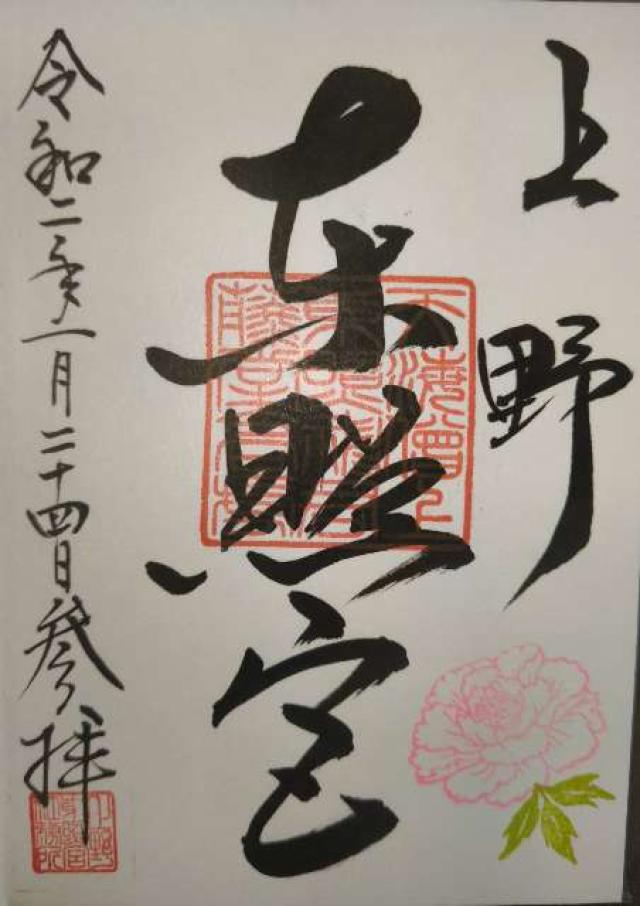 上野
東照宮
令和二年一月二十四日参拝